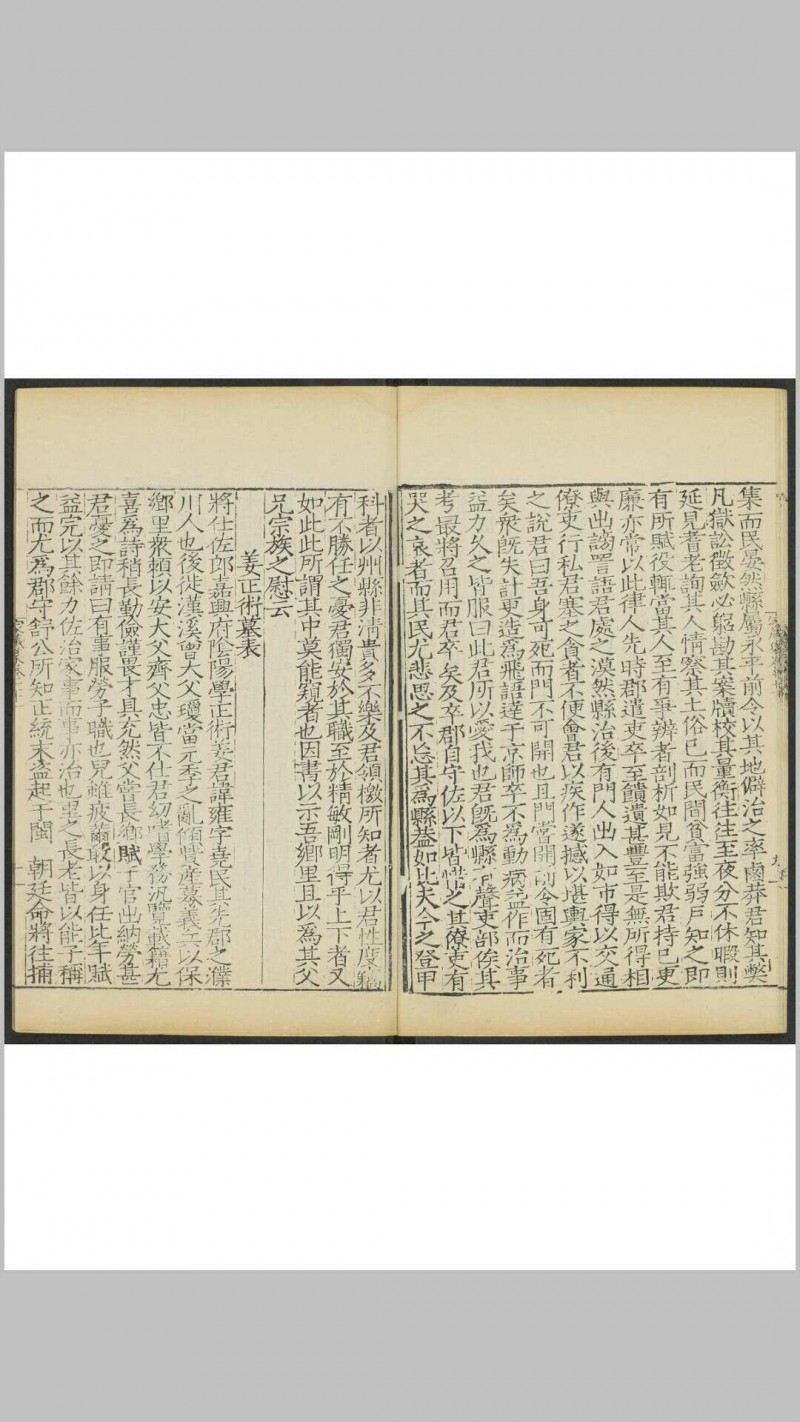 集而民晏然縣屬永平前令以其地僻治之率鹵莽君知其弊
凡獄訟徵斂必躬勘其案牘校其量衡往往至夜分不休暇則
延見耆老詢其人情察其土俗已而民間貧富強弱戶知之即
有所賦役輒當其人至有爭辨者剖析如見不能欺君持已更
廉亦常以此律人先時郡遣吏卒至饋遺甚豐至是無所得相
與出謗詈語君處之漠然縣治後有門人出入如市得以交通
僚吏行私君塞之貪者不便會君以疾作遂撼以堪輿家不利
之說君曰吾身可死而門不可開也且門嘗開前令固有死者
矣衆旣失計更造爲飛語達于京師卒不爲動病益作而治事
益力久之皆服曰此君所以愛我也君旣爲縣有聲吏部俟其
考最將召用而君卒矣及卒郡自守佐以下皆惜之其僚吏有
哭之哀者而其民尤悲思之不忘其爲縣葢如此夫今之登甲
科者以州縣非清貴多不樂及君領檄所知者尤以君性度
有不勝任之憂君獨安於其職至於精敏剛明得乎上下者又
如此此所謂其中莫能窺者也因書以示吾鄉里且以爲其父
兄宗族之慰云
姜正術墓表
將仕佐郎嘉興府陰陽學正術姜君諱雍字堯民其先郡之濮
川人也後徙漢溪曾大父瓊當元季之亂傾貲産募義士以保
鄉里衆頼以安大父齊父忠皆不仕君幼嗜學務汎覽載籍尤
喜爲詩稍長勤儉謹畏才具充然父嘗長鄉賦于官出納勞甚
君憂之即請曰有事服勞子職也兒雖疲薾敢以身任比年賦
益完以其餘力佐治家事而事亦治也里之長老皆以能子稱
之而尤爲郡守舒公所知正統末盗起于閩　朝廷命將往捕